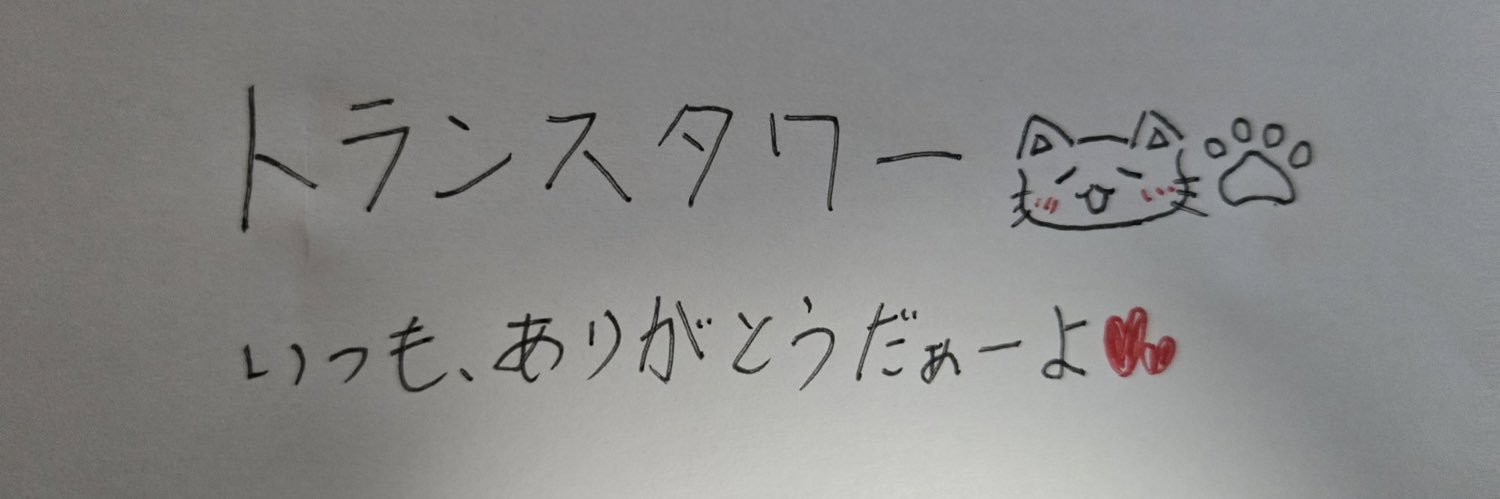 トランスタワー
いつも、ありがとうだぁーよ